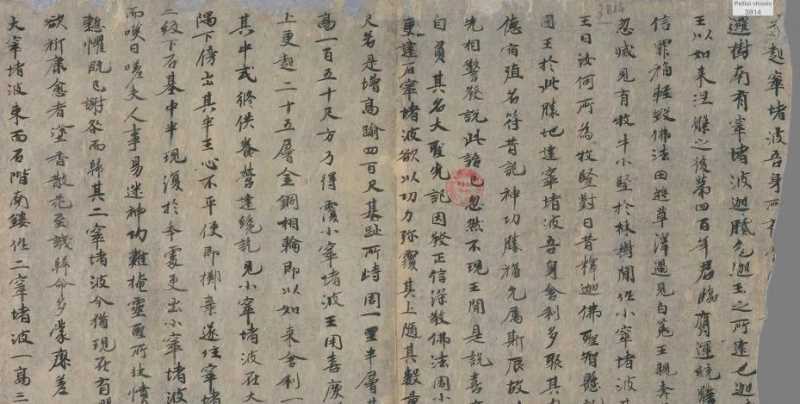 起窣堵波吾身所
羅樹南有窣堵波迦膩色迦王之所建也迦
王以如來涅槃之後第四百年君臨膺運統贍
信罪福輕毀佛法田遊草澤遇見白菟王親奔
忽滅見有牧牛小竪於林樹間作小窣堵波其
王曰汝何所為牧竪對曰昔釋迦佛聖智懸
國王於此勝地建窣堵波吾身舍利多聚其內
德宿殖名符昔記神功勝福允属斯辰故
先相警發說此語已忽然不現王聞是說喜
自負其名大聖先記因發正信深敬佛法周小
更建石窣堵波欲以功力弥覆其上隨其數量
尺若是增高踰四百尺基趾所峙周一里半層基
高一百五十尺方乃得覆小窣堵波王因喜慶
上更起二十五層金銅相輪即以如来舍利一
其中式修供養營建纔訖見小窣堵波在大
隅下傍出其半王心不平便即擲棄遂住窣堵
二級下石基中半現復於本處更出小窣堵波
而嘆曰嗟夫人事易迷神功難掩靈聖所扶憤
慙懼既已謝咎而歸其二窣堵波今猶現在有
欲祈康愈者塗香散花至誠歸命多蒙瘳差
大窣堵波東面石階南鏤作二窣堵波一高三
Pelliot chinois
3814